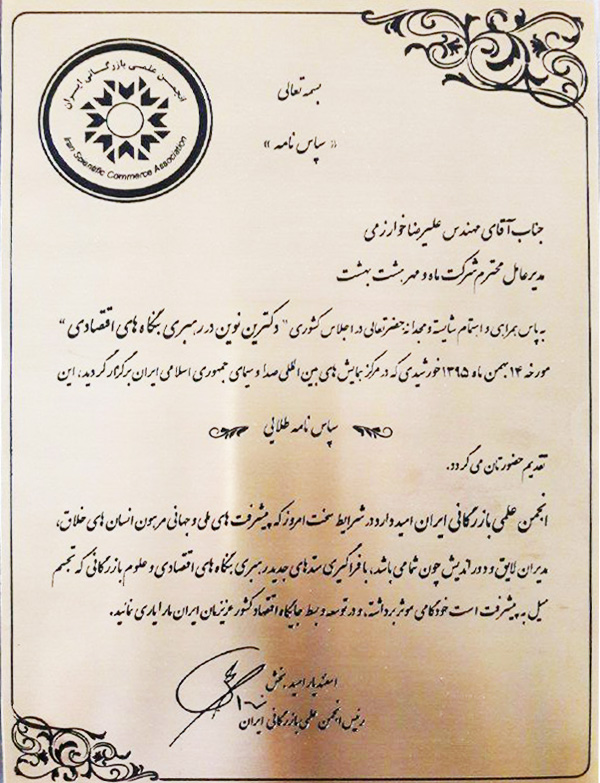 انجمن علمی بازرگانی ایران
Iran Scientific Commerce Association
بسمه تعالی
« سپاس نامه »
جناب آقای مهندس علیرضا خوارزمی
مدیرعامل محترم شرکت ماه و مهر بهشت بهشت
به پاس همراهی و اهتمام شایسته و مجدانه حضرتعالی در اجلاس کشوری " دکترین نوین در رهبری بنگاه های اقتصادی "
مورخه ۱۴ بهمن ماه ۱۳۹۵ خورشیدی که در مرکز همایش های بین المللی صدا و سیمای جمهوری اسلامی ایران برگزار گردید، این
سپاس نامه طلایی
تقدیم حضورتان می گردد.
انجمن علمی بازرگانی ایران امید دارد در شرایط سخت امروز که پیشرفت های ملی و جهانی مرهون انسان های خلاق،
مدیران لایق و دور اندیش چون شما می باشد، با فراگیری متدهای جدید رهبری بنگاه های اقتصادی و علوم بازرگانی که تجسم
میل به پیشرفت است خود گامی موثر برداشته، و در توسعه و بسط جایگاه اقتصاد کشور عزیزمان ایران ما را یاری نمائید.
اسفندیار امید بخش
رئیس انجمن علمی بازرگانی ایران